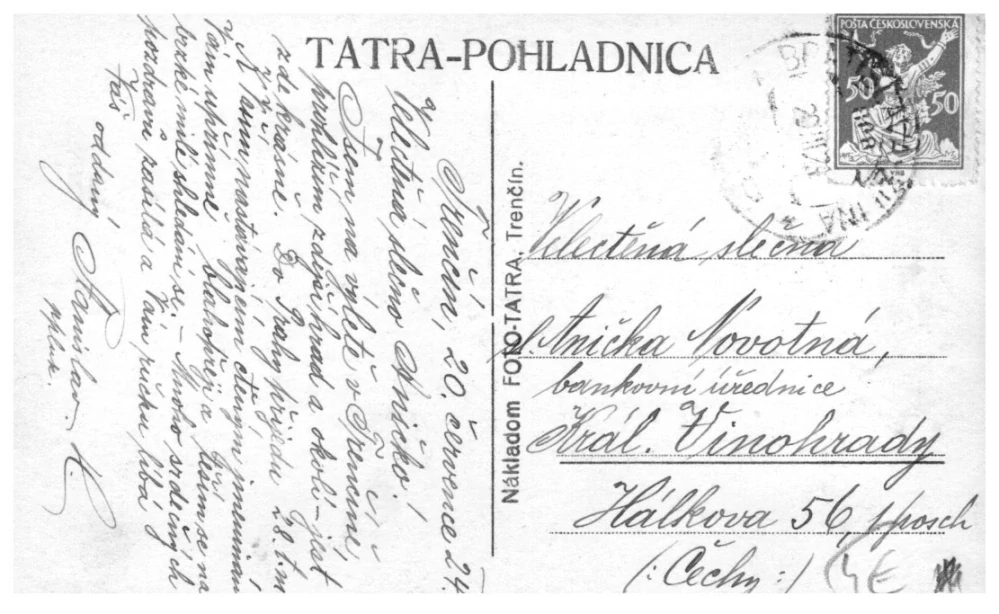 TATRA-POHLADNICA
POŠTA ČESKOSLOVENSKÁ
50 50
Nákladom FOTO-TATRA, Trenčín.
Trenčín, 20. července 24.
Velectěná slečno Aničko!
Jsem na výletě v Trenčíně,
prohlížím zdejší hrad a okolí – jest
zde krásné. Do Prahy přijedu 28. t.m.
K Vašim nastávajícím cteným jmeninám
Vám upřímně blahopřeji a těším se na
brzké milé shledání se. – Mnoho srdečných
pozdravů zasílá a Vám ručku líbá
Váš oddaný Stanislav K.
Velectěná slečna
sl. Anička Novotná,
bankovní úřednice
Král. Vinohrady
Hálkova 56, I posch
(: Čechy :)